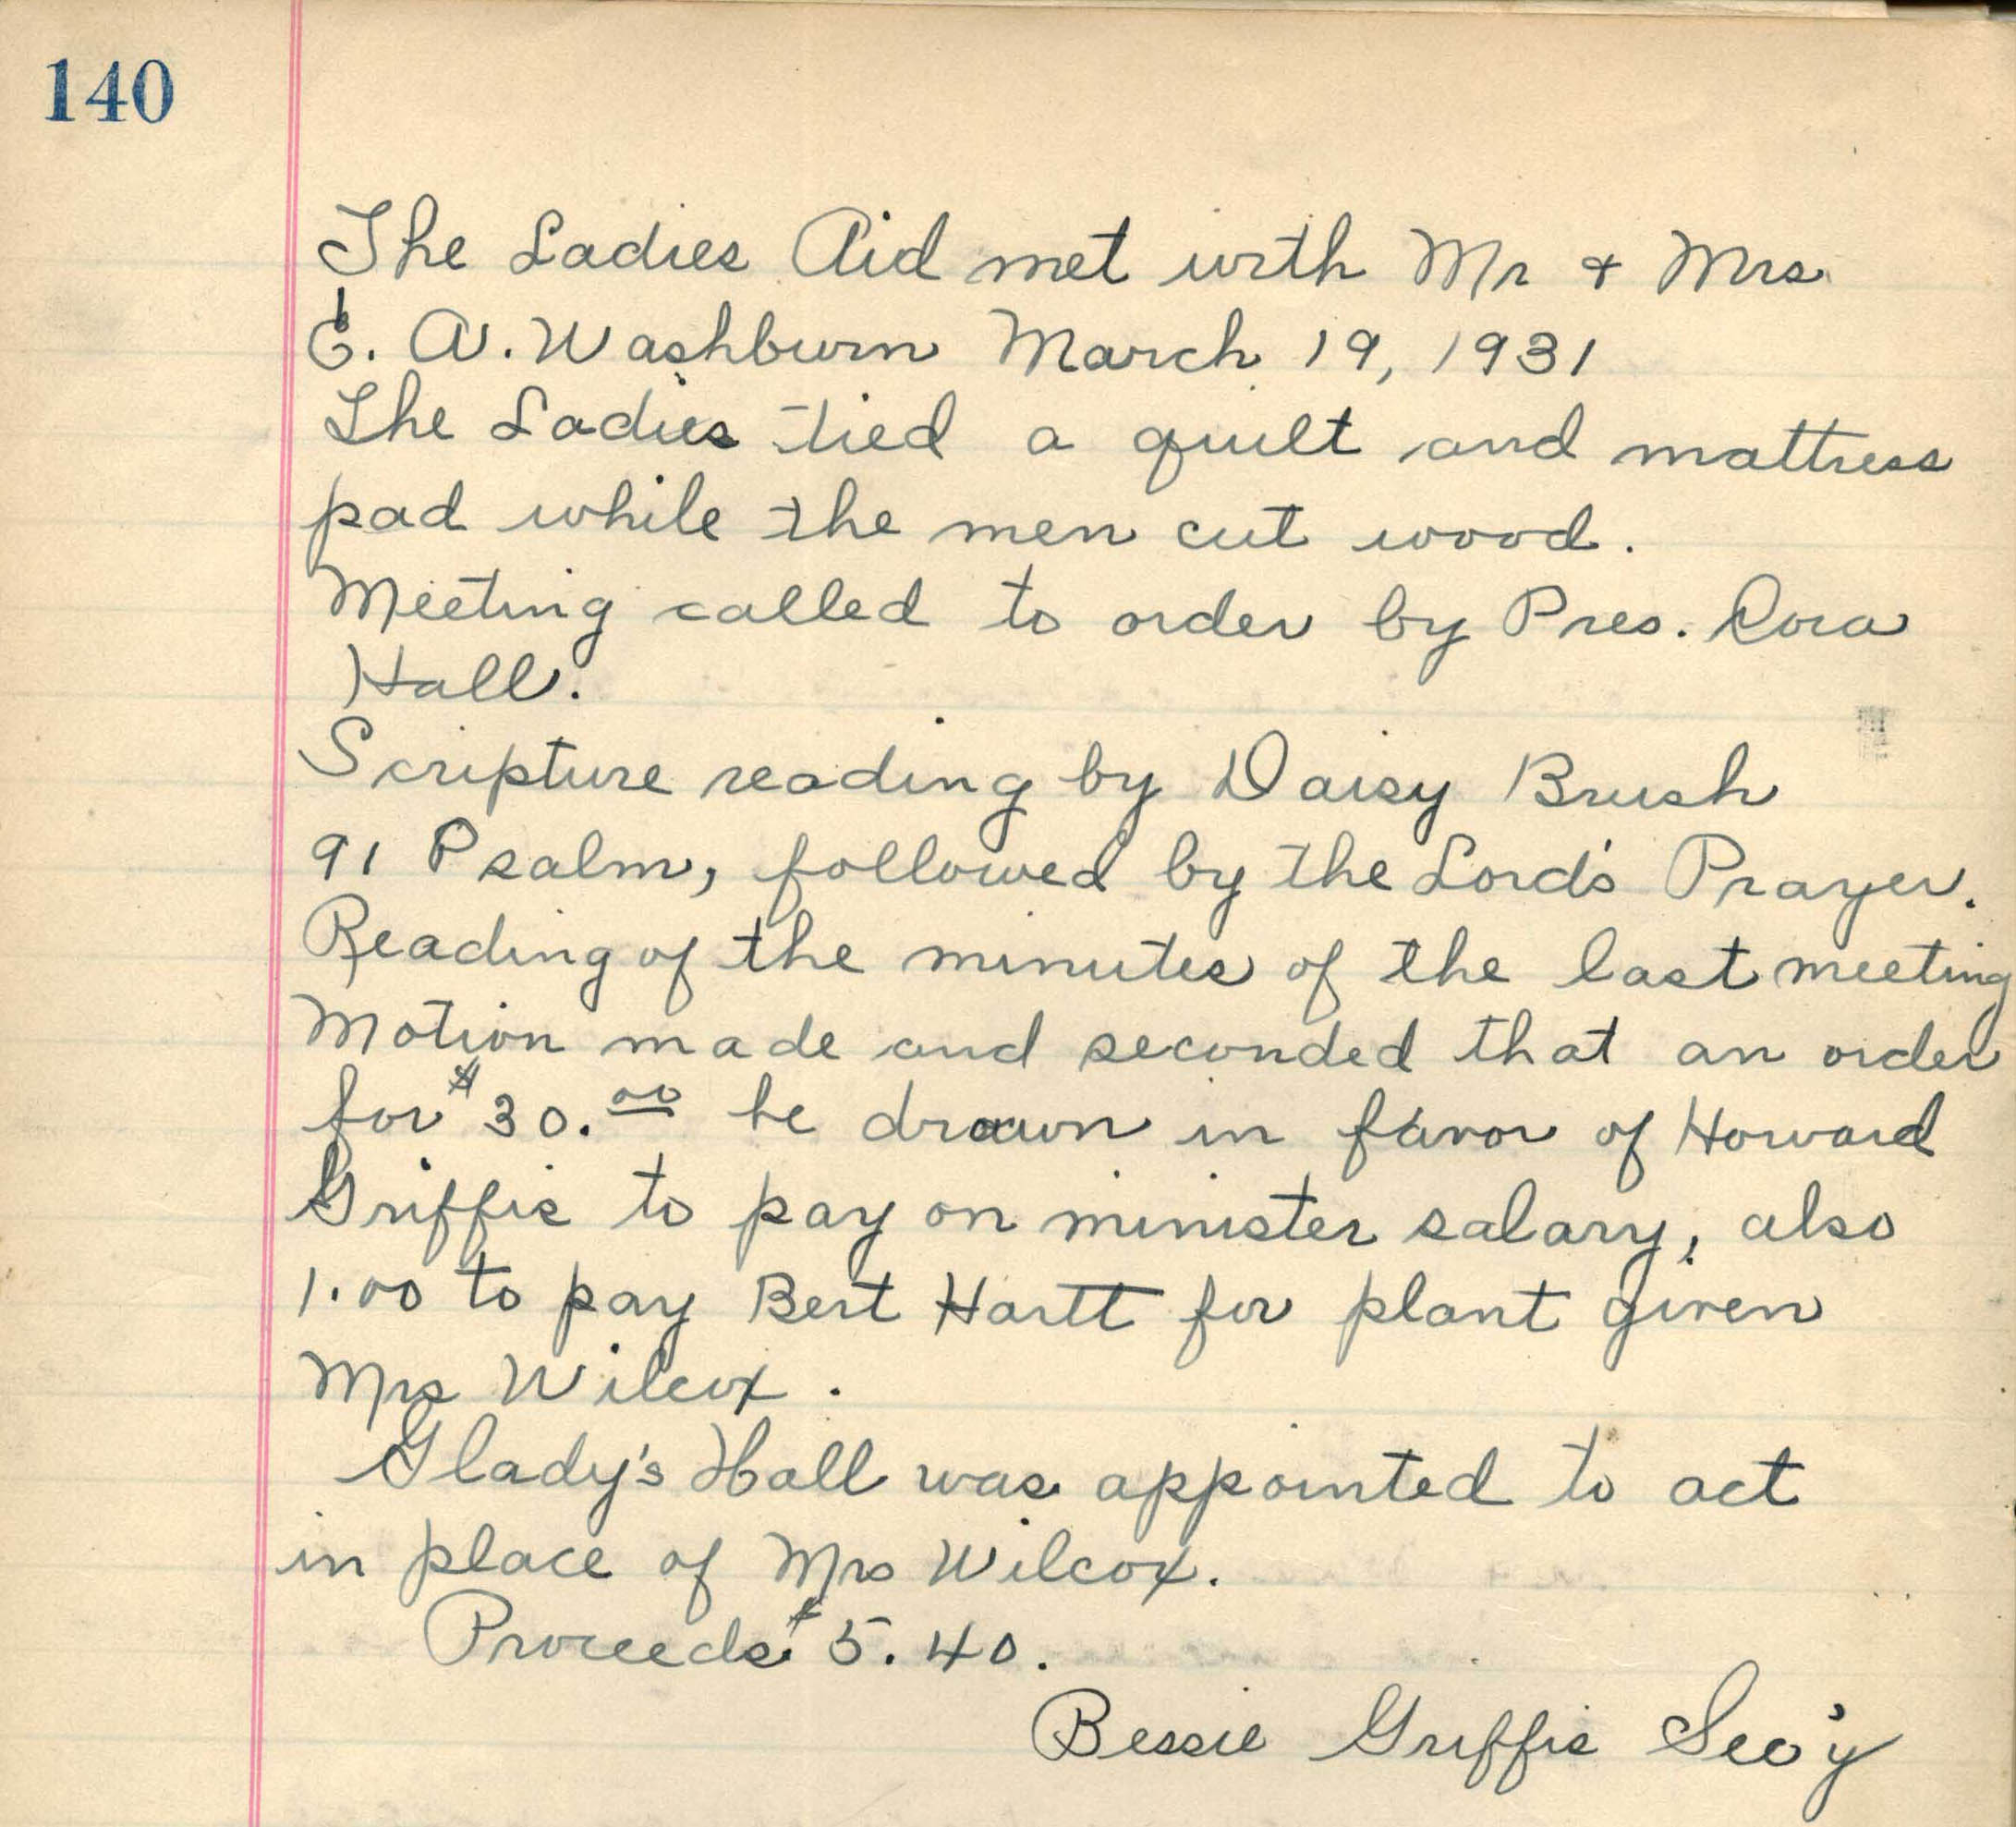 140
The Ladies Aid met with Mr & Mrs
C. A. Washburn March 19, 1931
The Ladies tied a quilt and mattress
pad while the men cut wood.
Meeting called to order by Pres. Cora
Hall.
Scripture reading by Daisy Brush
91 Psalm, followed by the Lord's Prayer.
Reading of the minutes of the last meeting
Motion made and seconded that an order
for $30.00 be drawn in favor of Howard
Griffis to pay on minister salary, also
1.00 to pay Bert Hartt for plant given
Mrs Wilcox.
Glady's Hall was appointed to act
in place of Mrs Wilcox.
Proceeds $5.40.
Bessie Griffis Sec'y